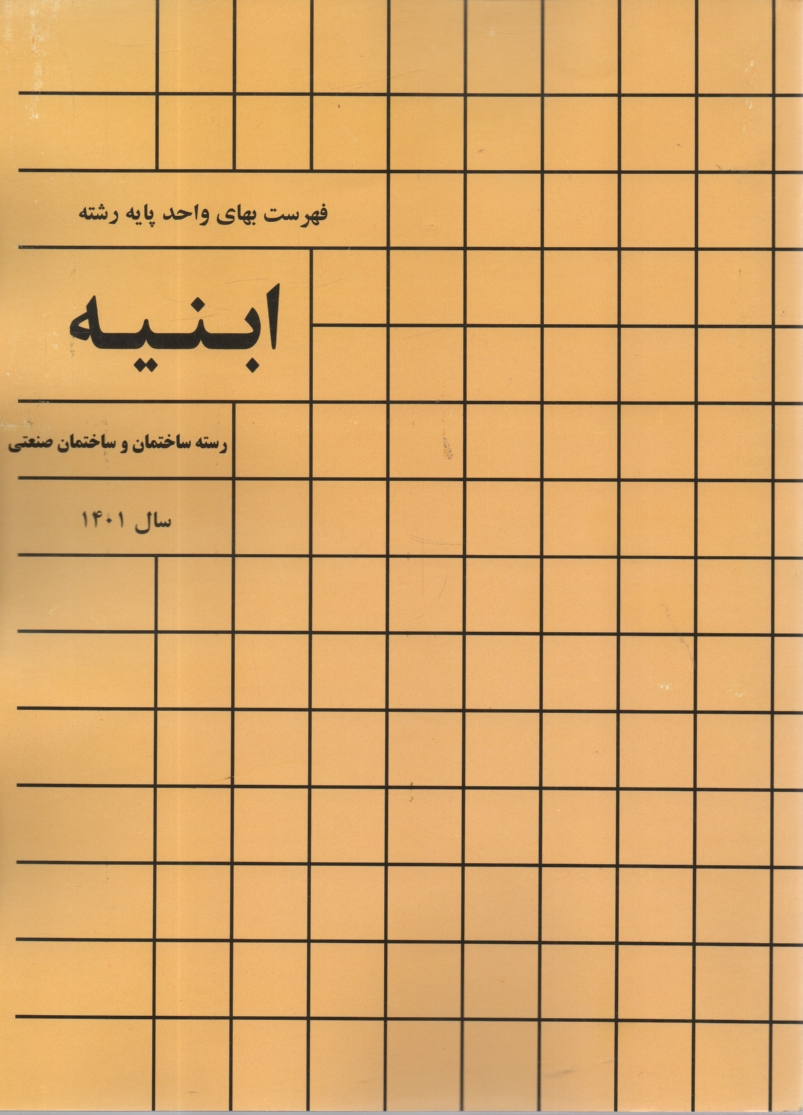 فهرست بهای واحد پایه رشته
ابنیه
رسته ساختمان و ساختمان صنعتی
سال ۱۴۰۱